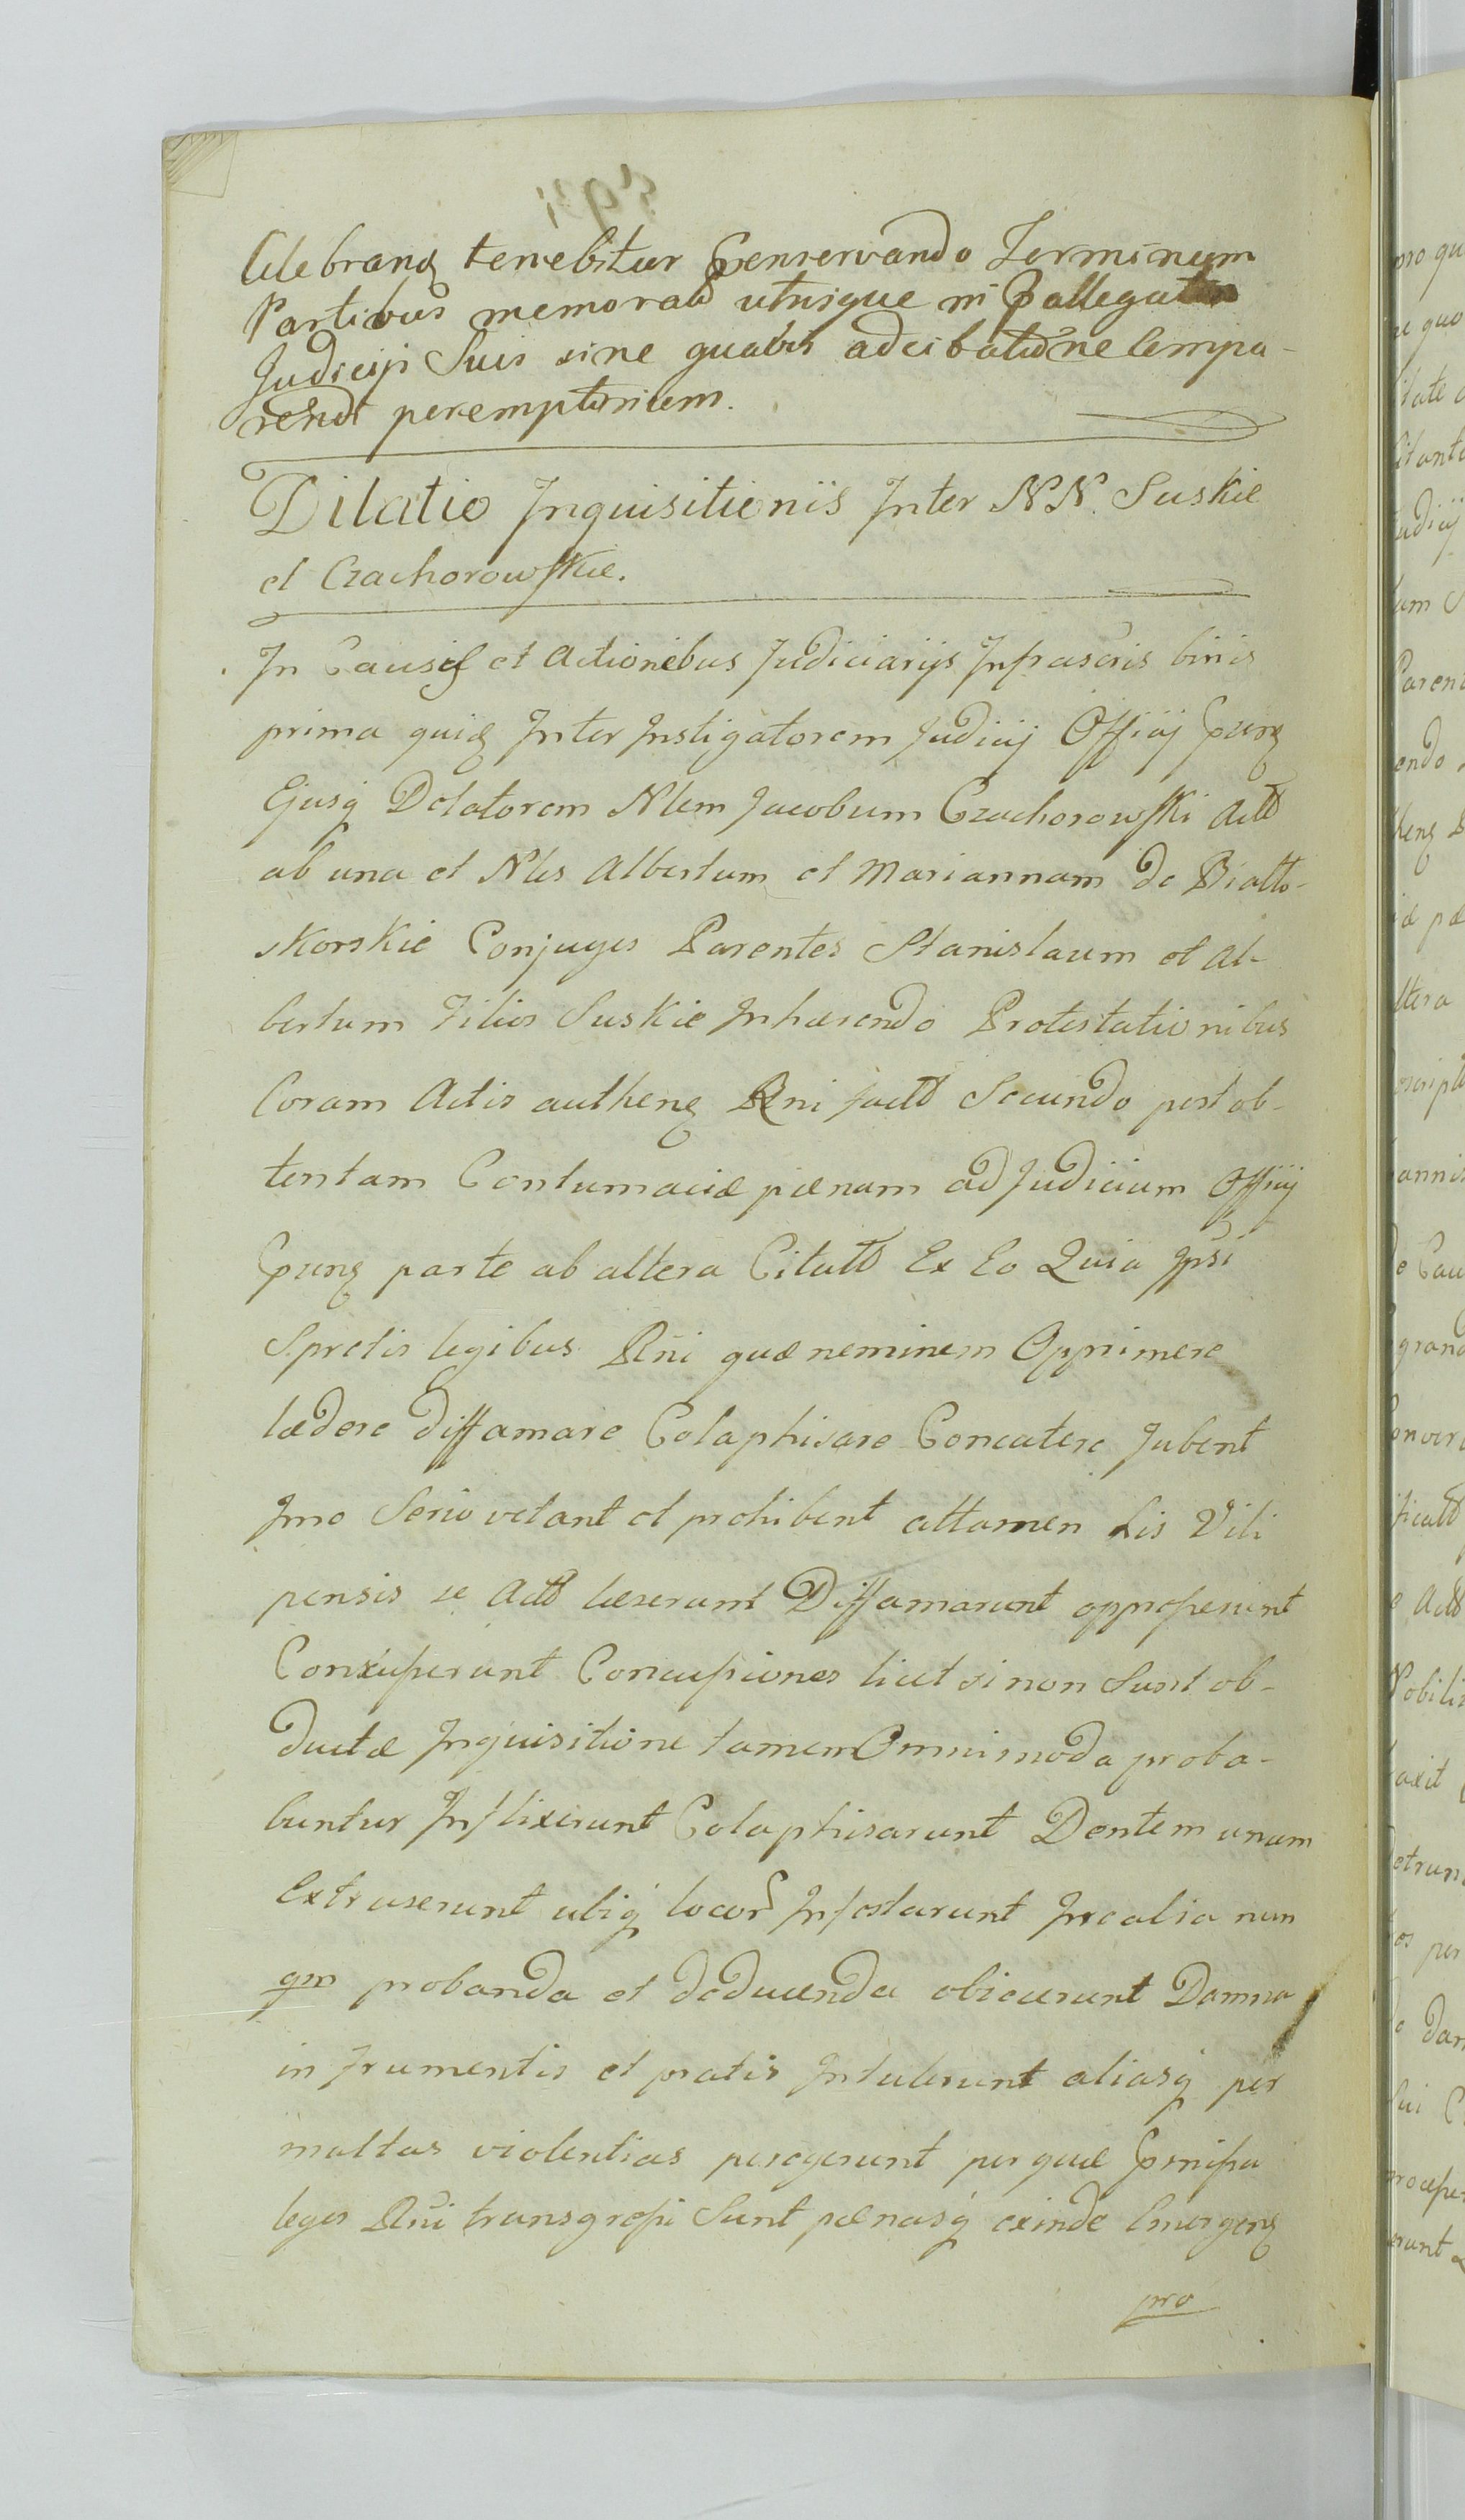 Celebranᶎ tenebitur Conservando Terminum
Partibus memorat utrisque in
Judicijs Suis sine quavis adcitatione Compa-
rendi peremptorium.
Dilatio Inquisitionis Inter N.N. Suskie
et Czachorowskie.
In Causis et Actionibus Judiciarijs Infrascris binis
prima quiᶎ Inter Instigatorem Judicij Officij prᶎ
Ejusq Delatorem Nlem Jacobum Czachorowski Act
ab una et Nles Albertum et Mariannam de Biatto-
skorskie Conjuges Parentes Stanislaum et Al-
bertum Filios Suskie Inhaerendo Protestationibus
Coram Actis authenᶎ Rni fact Secundo post ob-
tentam Contumaciæ pænam ad Judicium Officij
prᶎ parte ab altera Citat Ex Eo Quia Ipsi
Spretis legibus Rni quæ neminem Opprimere
lædere diffamare Colaphisare Concutere Jubent
Imo Serio vetant et prohibent attamen his Vili
pensis se Act læserunt Diffamarunt oppresserunt
Concusserunt Concussiones licet si non Sunt ob-
ductæ Inquisitione tamen Omnimoda proba-
buntur Inflixerunt Colaphisarunt Dentem unum
Extruserunt ubiq locor Infestarunt Irealia nun
qm probanda et deducenda obiecerunt Damna
in frumentis et pratis Intulerunt aliasq per
multas violentias peregerunt per quæ
leges Rni transgressi Sunt pænasq exinde Emergenᶎ
pro